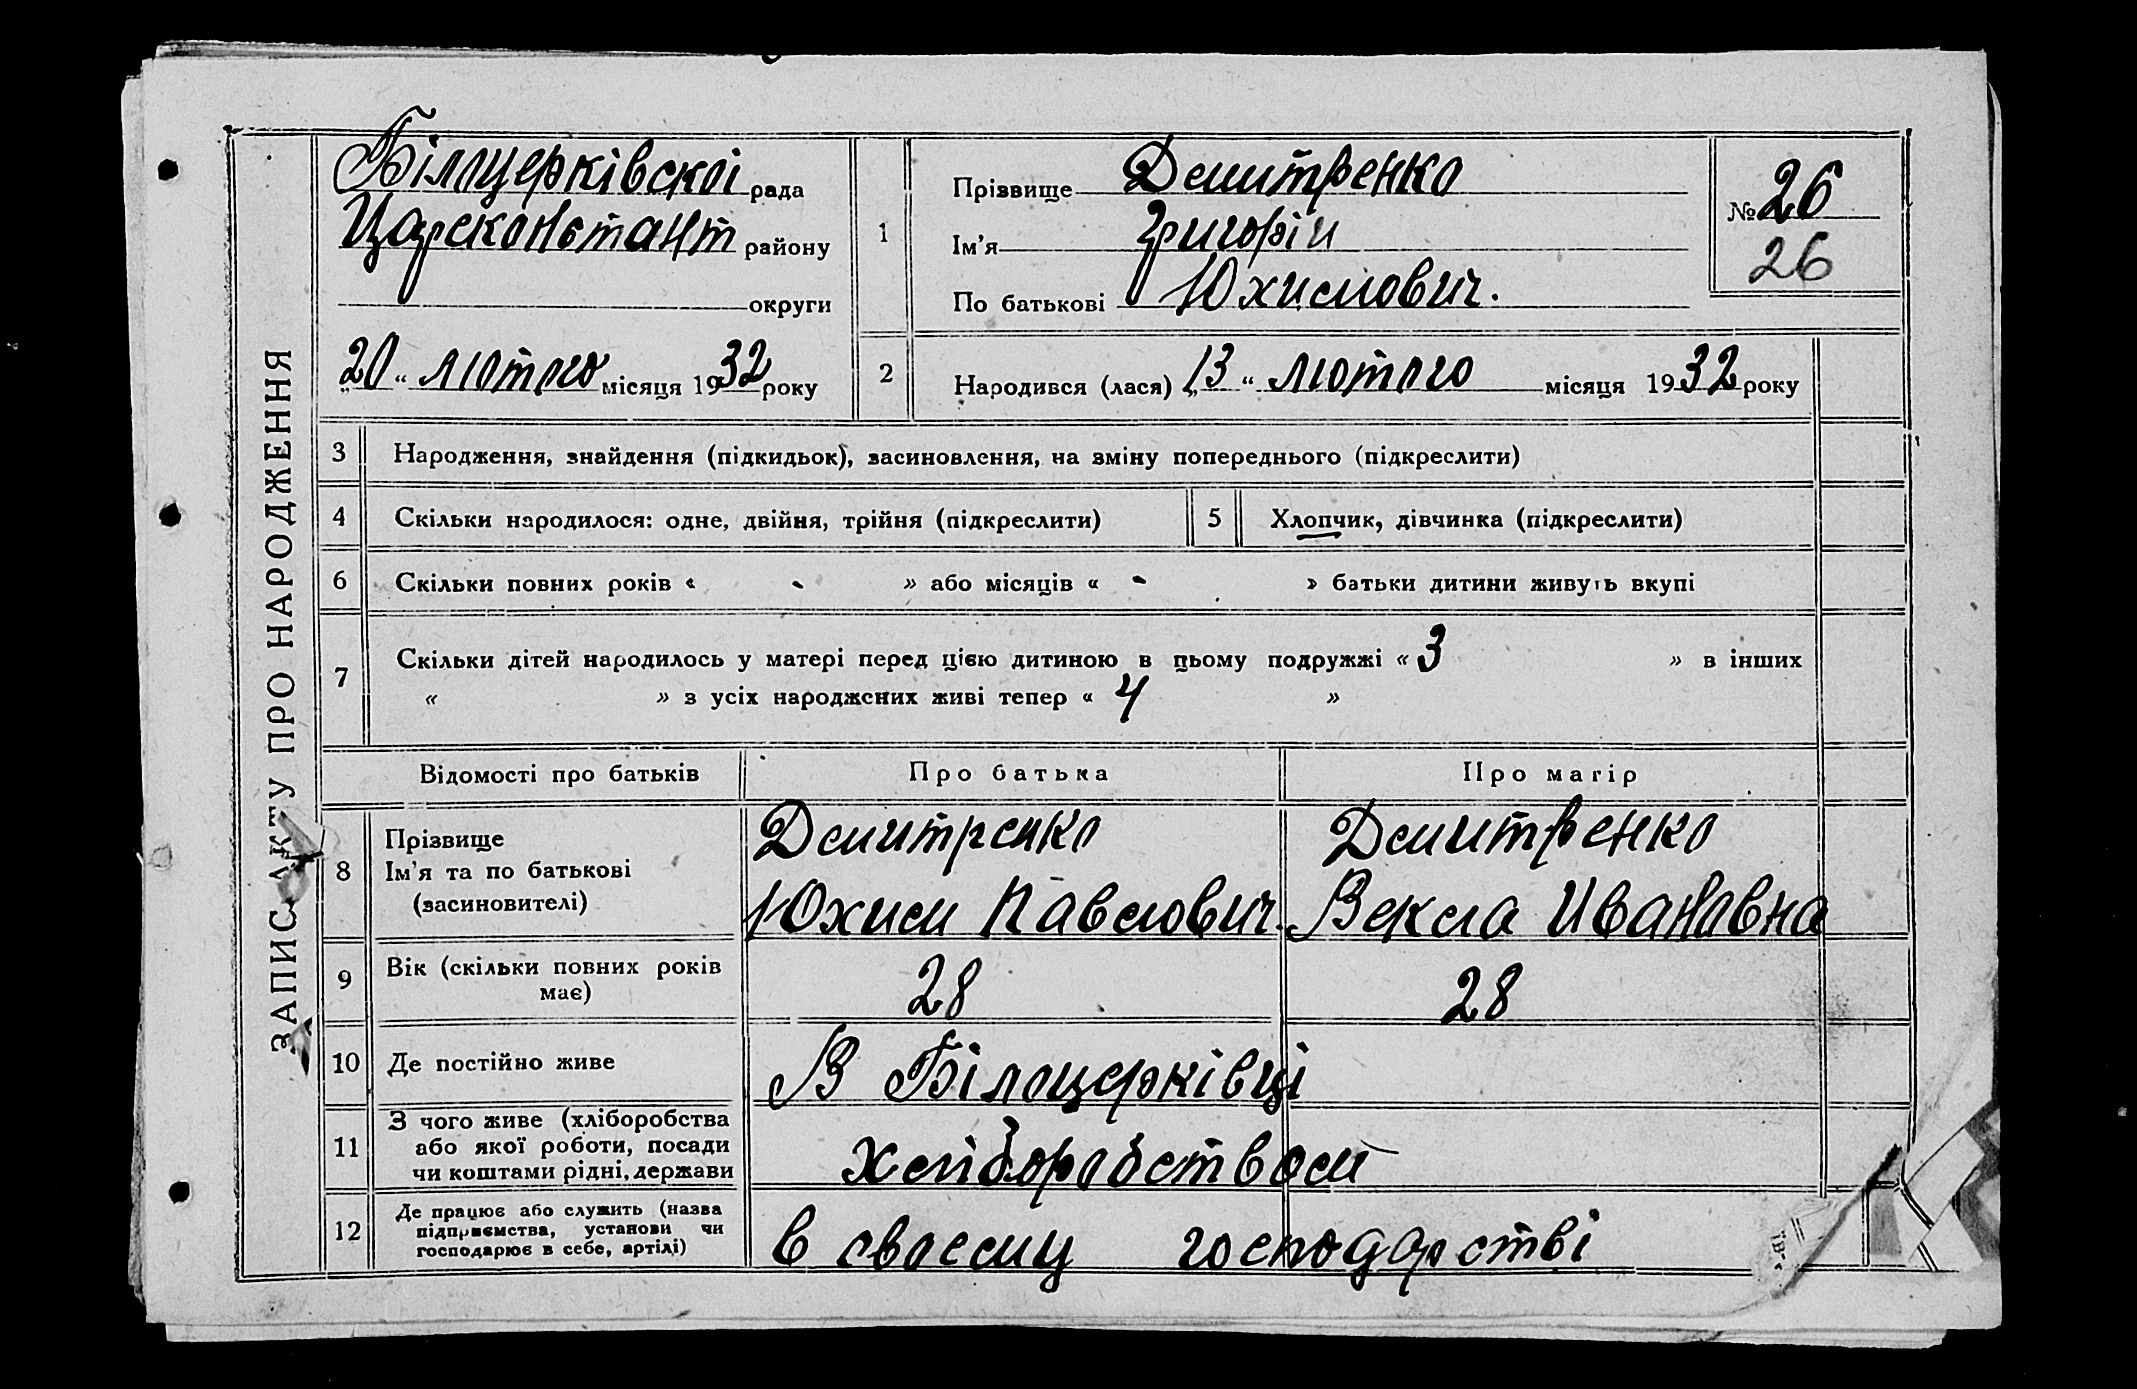 ЗАПИС АКТУ ПРО НАРОДЖЕННЯ
Білоцерківскої рада
Царсконстант району
округи
„20“ лютого місяця 1932 року
1
Прізвище Демитренко
Ім’я Григорій
По батькові Юхимович.
№ 26
26
2
Народився (лася) „13“ лютого місяця 1932 року
3 Народження, знайдення (підкидьок), засиновлення, на зміну попереднього (підкреслити)
4 Скільки народилося: одне, двійня, трійня (підкреслити)
5 Хлопчик, дівчинка (підкреслити)
6 Скільки повних років « - » або місяців « - » батьки дитини живуть вкупі
7 Скільки дітей народилось у матері перед цією дитиною в цьому подружжі « 3 » в інших
« » з усіх народжених живі тепер « 4 »
Відомості про батьків Про батька Про матір
8 Прізвище
Ім’я та по батькові
(засиновителі)
Демитренко
Юхим Павлович.
Демитренко
Векла Ивановна
9 Вік (скільки повних років
має)
28 28
10 Де постійно живе В Білоцерківці
11 З чого живе (хліборобства
або якої роботи, посади
чи коштами рідні, держави
Хліборобством
12 Де працює або служить (назва
підприємства, установи чи
господарює в себе, артілі)
в своєму господарстві